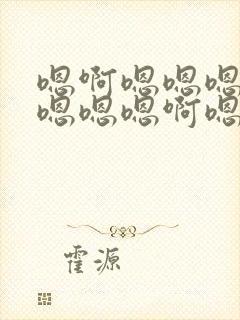 嗯啊嗯嗯嗯
嗯嗯嗯啊嗯
霍源